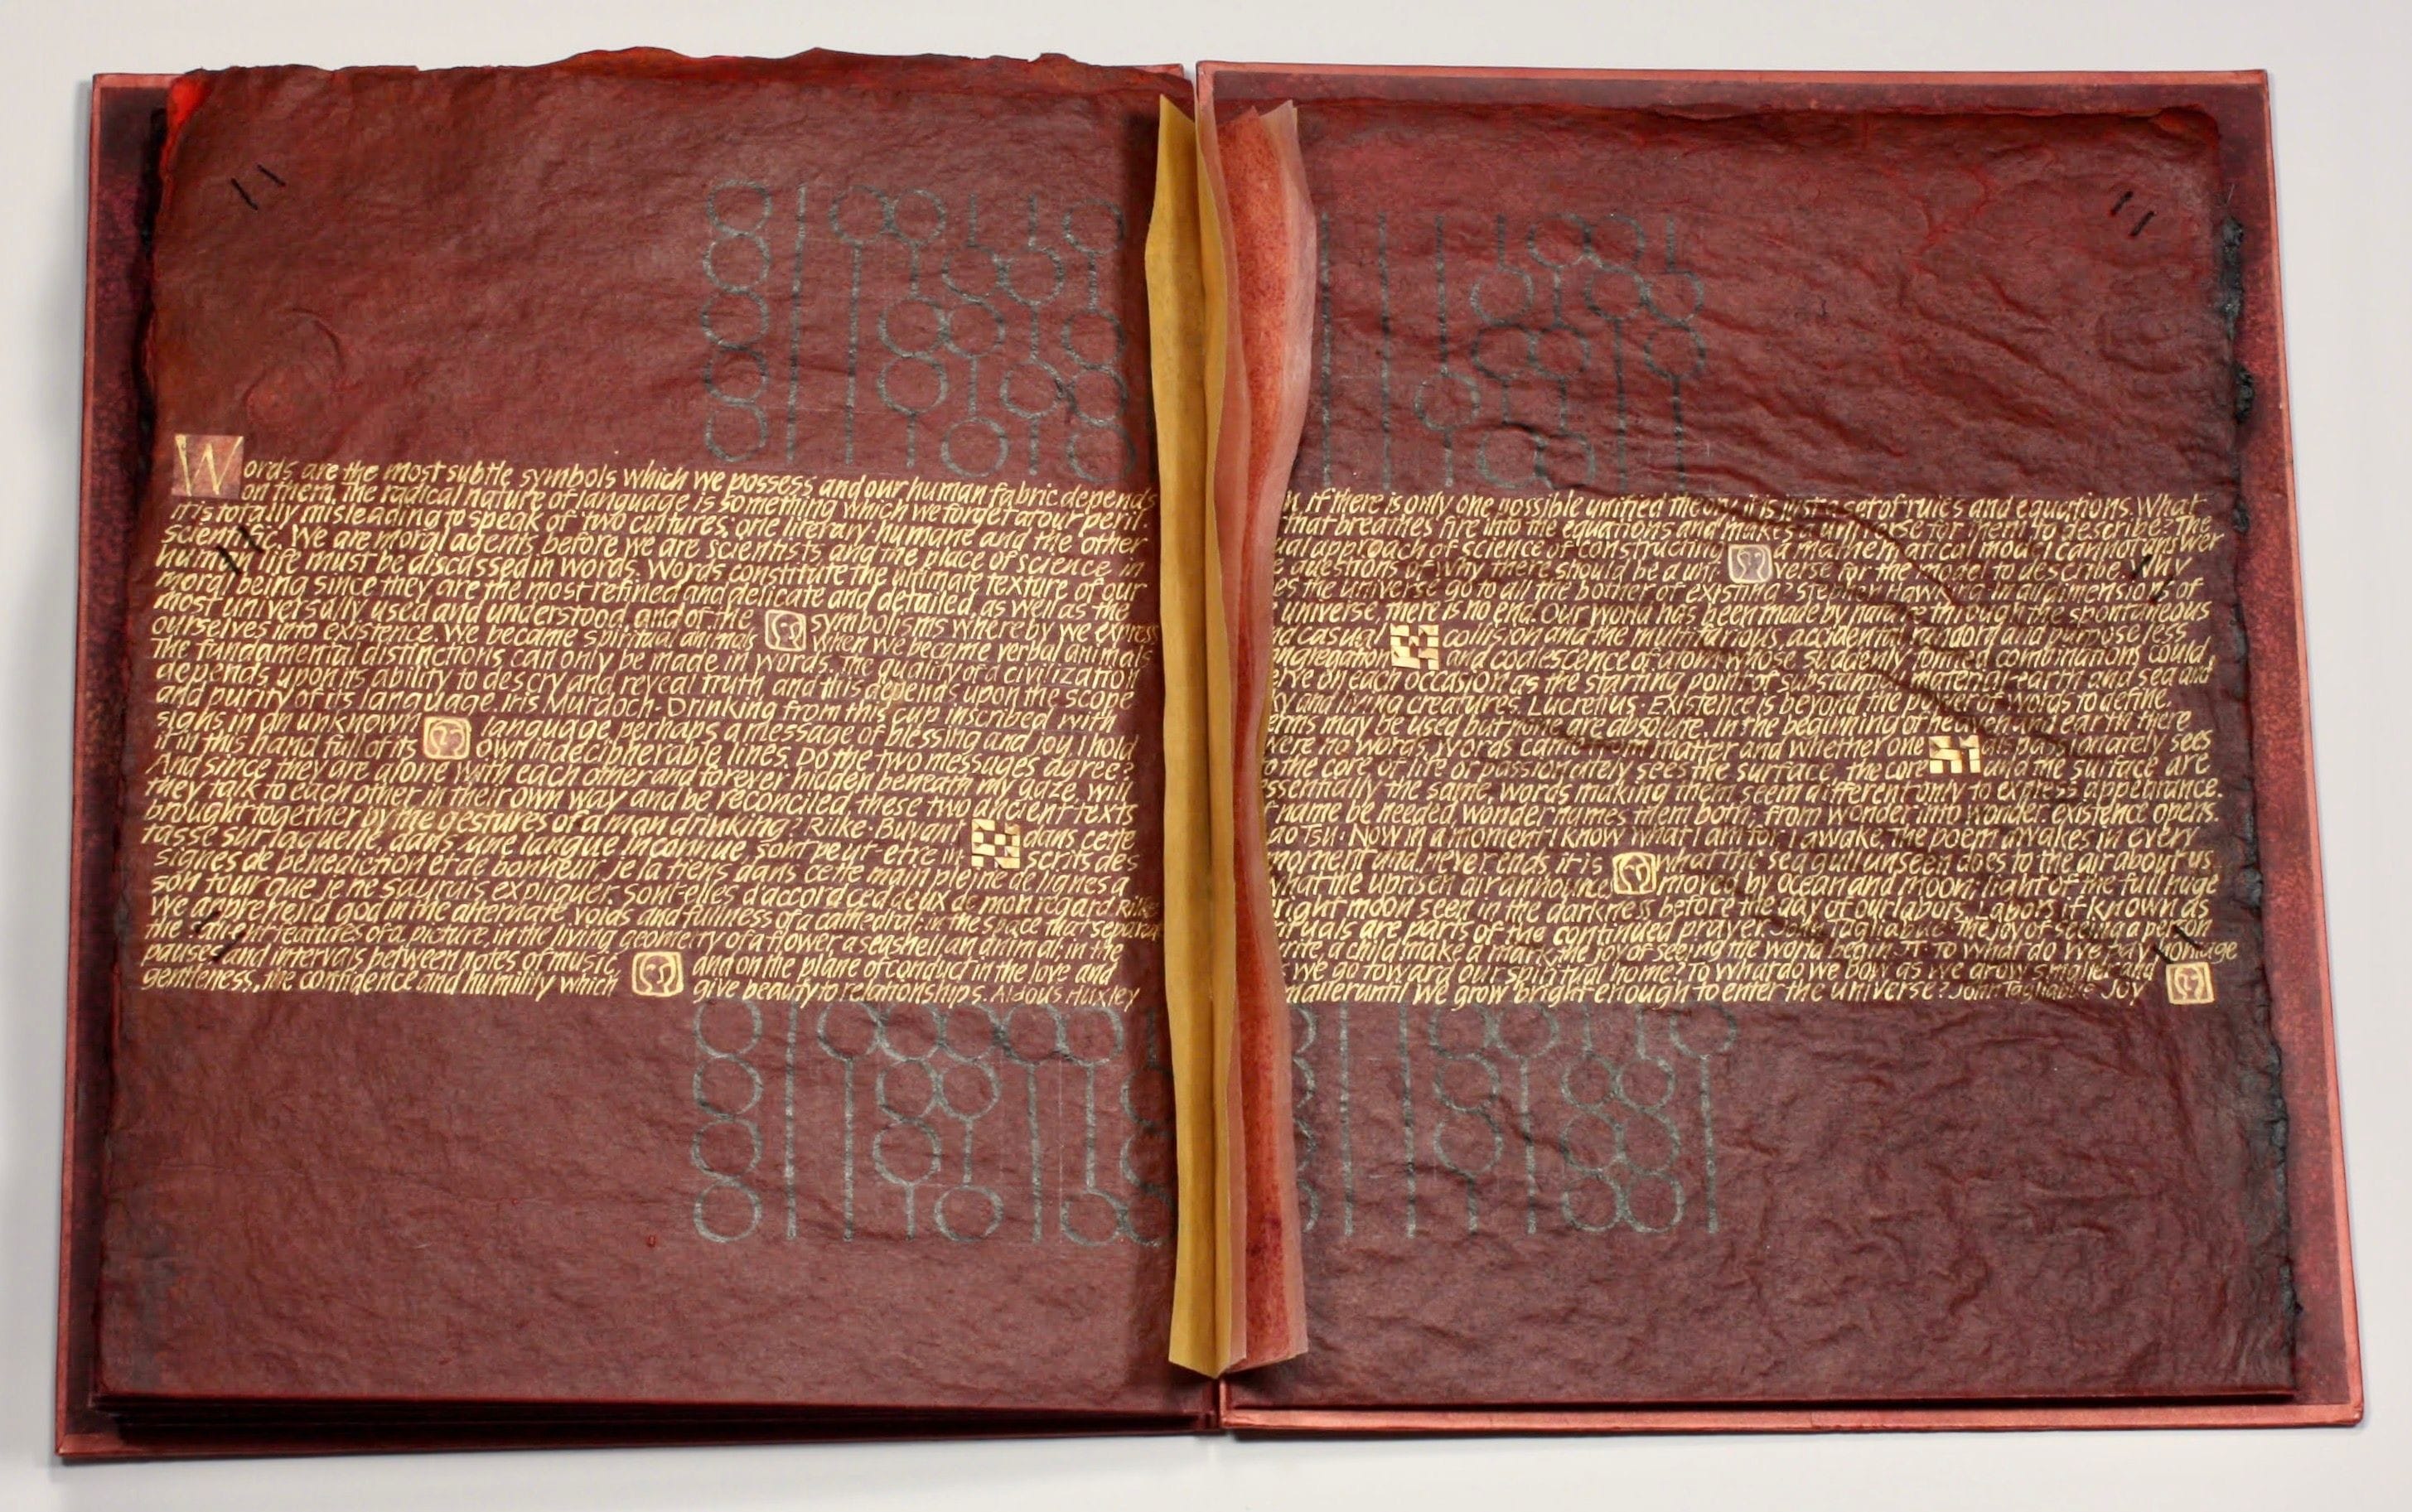 Words, are the most subtle symbols which we possess and our human fabric depends
on them. The radical nature of language is something which we forget at our peril.
It is totally misleading to speak of 'two cultures', one literary-humane and the other
scientific. We are moral agents before we are scientists and the place of science in
human life must be discussed in words. Words constitute the ultimate texture of our
moral being since they are the most refined and delicate and detailed, as well as the
most universally used and understood, and of the symbolisms whereby we express
ourselves into existence. We became spiritual animals when we became verbal animals
The fundamental distinctions can only be made in words. The quality of a civilization
depends upon its ability to descry and reveal truth, and this depends upon the scope
and purity of its language. Iris Murdoch · Drinking from this cup inscribed with
signs in an unknown language, perhaps a message of blessing and joy I hold
it in this hand full of its own indecipherable lines. Do the two messages agree?
And since they are alone with each other and forever hidden beneath my gaze, will
they talk to each other in their own way and be reconciled these two ancient texts
brought together by the gestures of a man drinking? Rilke · Buvant dans cette
tasse sur laquelle, dans une langue inconnue, sont peut-etre in scrits des
signes de benediction et de bonheur, je la tiens dans cette main pleine de lignes a
son tour que je ne saurais expliquer. Sont-elles d'accord ced deux de mon regard. Rilke
We apprehend god in the alternate voids and fullness of a cathedral; in the space that separates
the salient features of a picture, in the living geometry of a flower a seashell, an animal; in the
pauses and intervals between notes of music, and on the plane of conduct in the love and
gentleness, the confidence and humility which give beauty to relationships. Aldous Huxley
If there is only one possible unified theory it is just a set of rules and equations. What
that breathes fire into the equations and makes a universe for them to describe? The
approach of science of constructing a mathematical model cannot answer
questions of why there should be a uni verse for the model to describe. Why
the universe go to all the bother of existing? Stephen Hawking · In all dimensions of
universe, there is no end. Our world has been made by nature through the spontaneous
casual collision and the multifarious, accidental, random and purposeless
and coalescence of atoms whose suddenly formed combinations could
on each occasion as the starting point of substantial material-earth and sea and
and living creatures. Lucretius · Existence is beyond the power of words to define.
may be used but none are absolute. In the beginning of heaven and earth there
were no words, words came from matter and whether one dispassionately sees
to the core of life or passionately sees the surface, the core and the surface are
essentially the same, words making them seem different only to express appearance.
name be needed, wonder names them both; from wonder into wonder existence opens.
Tsu · Now in a moment I know what I am for, I awake. The poem awakes in every
moment and never ends it is what the seagull unseen does to the air about us,
what the uprisen air announces moved by ocean and moon; light of the full huge
bright moon seen in the darkness before the day of our labors. Labors if known as
rituals are parts of the continued prayer. John Tagliabue · The joy of seeing a person
write a child make a mark, the joy of seeing the world begin. To what do we pay homage
we go toward our spiritual home? To what do we bow as we grow smaller and
smaller until we grow bright enough to enter the universe? John Tagliabue Joy